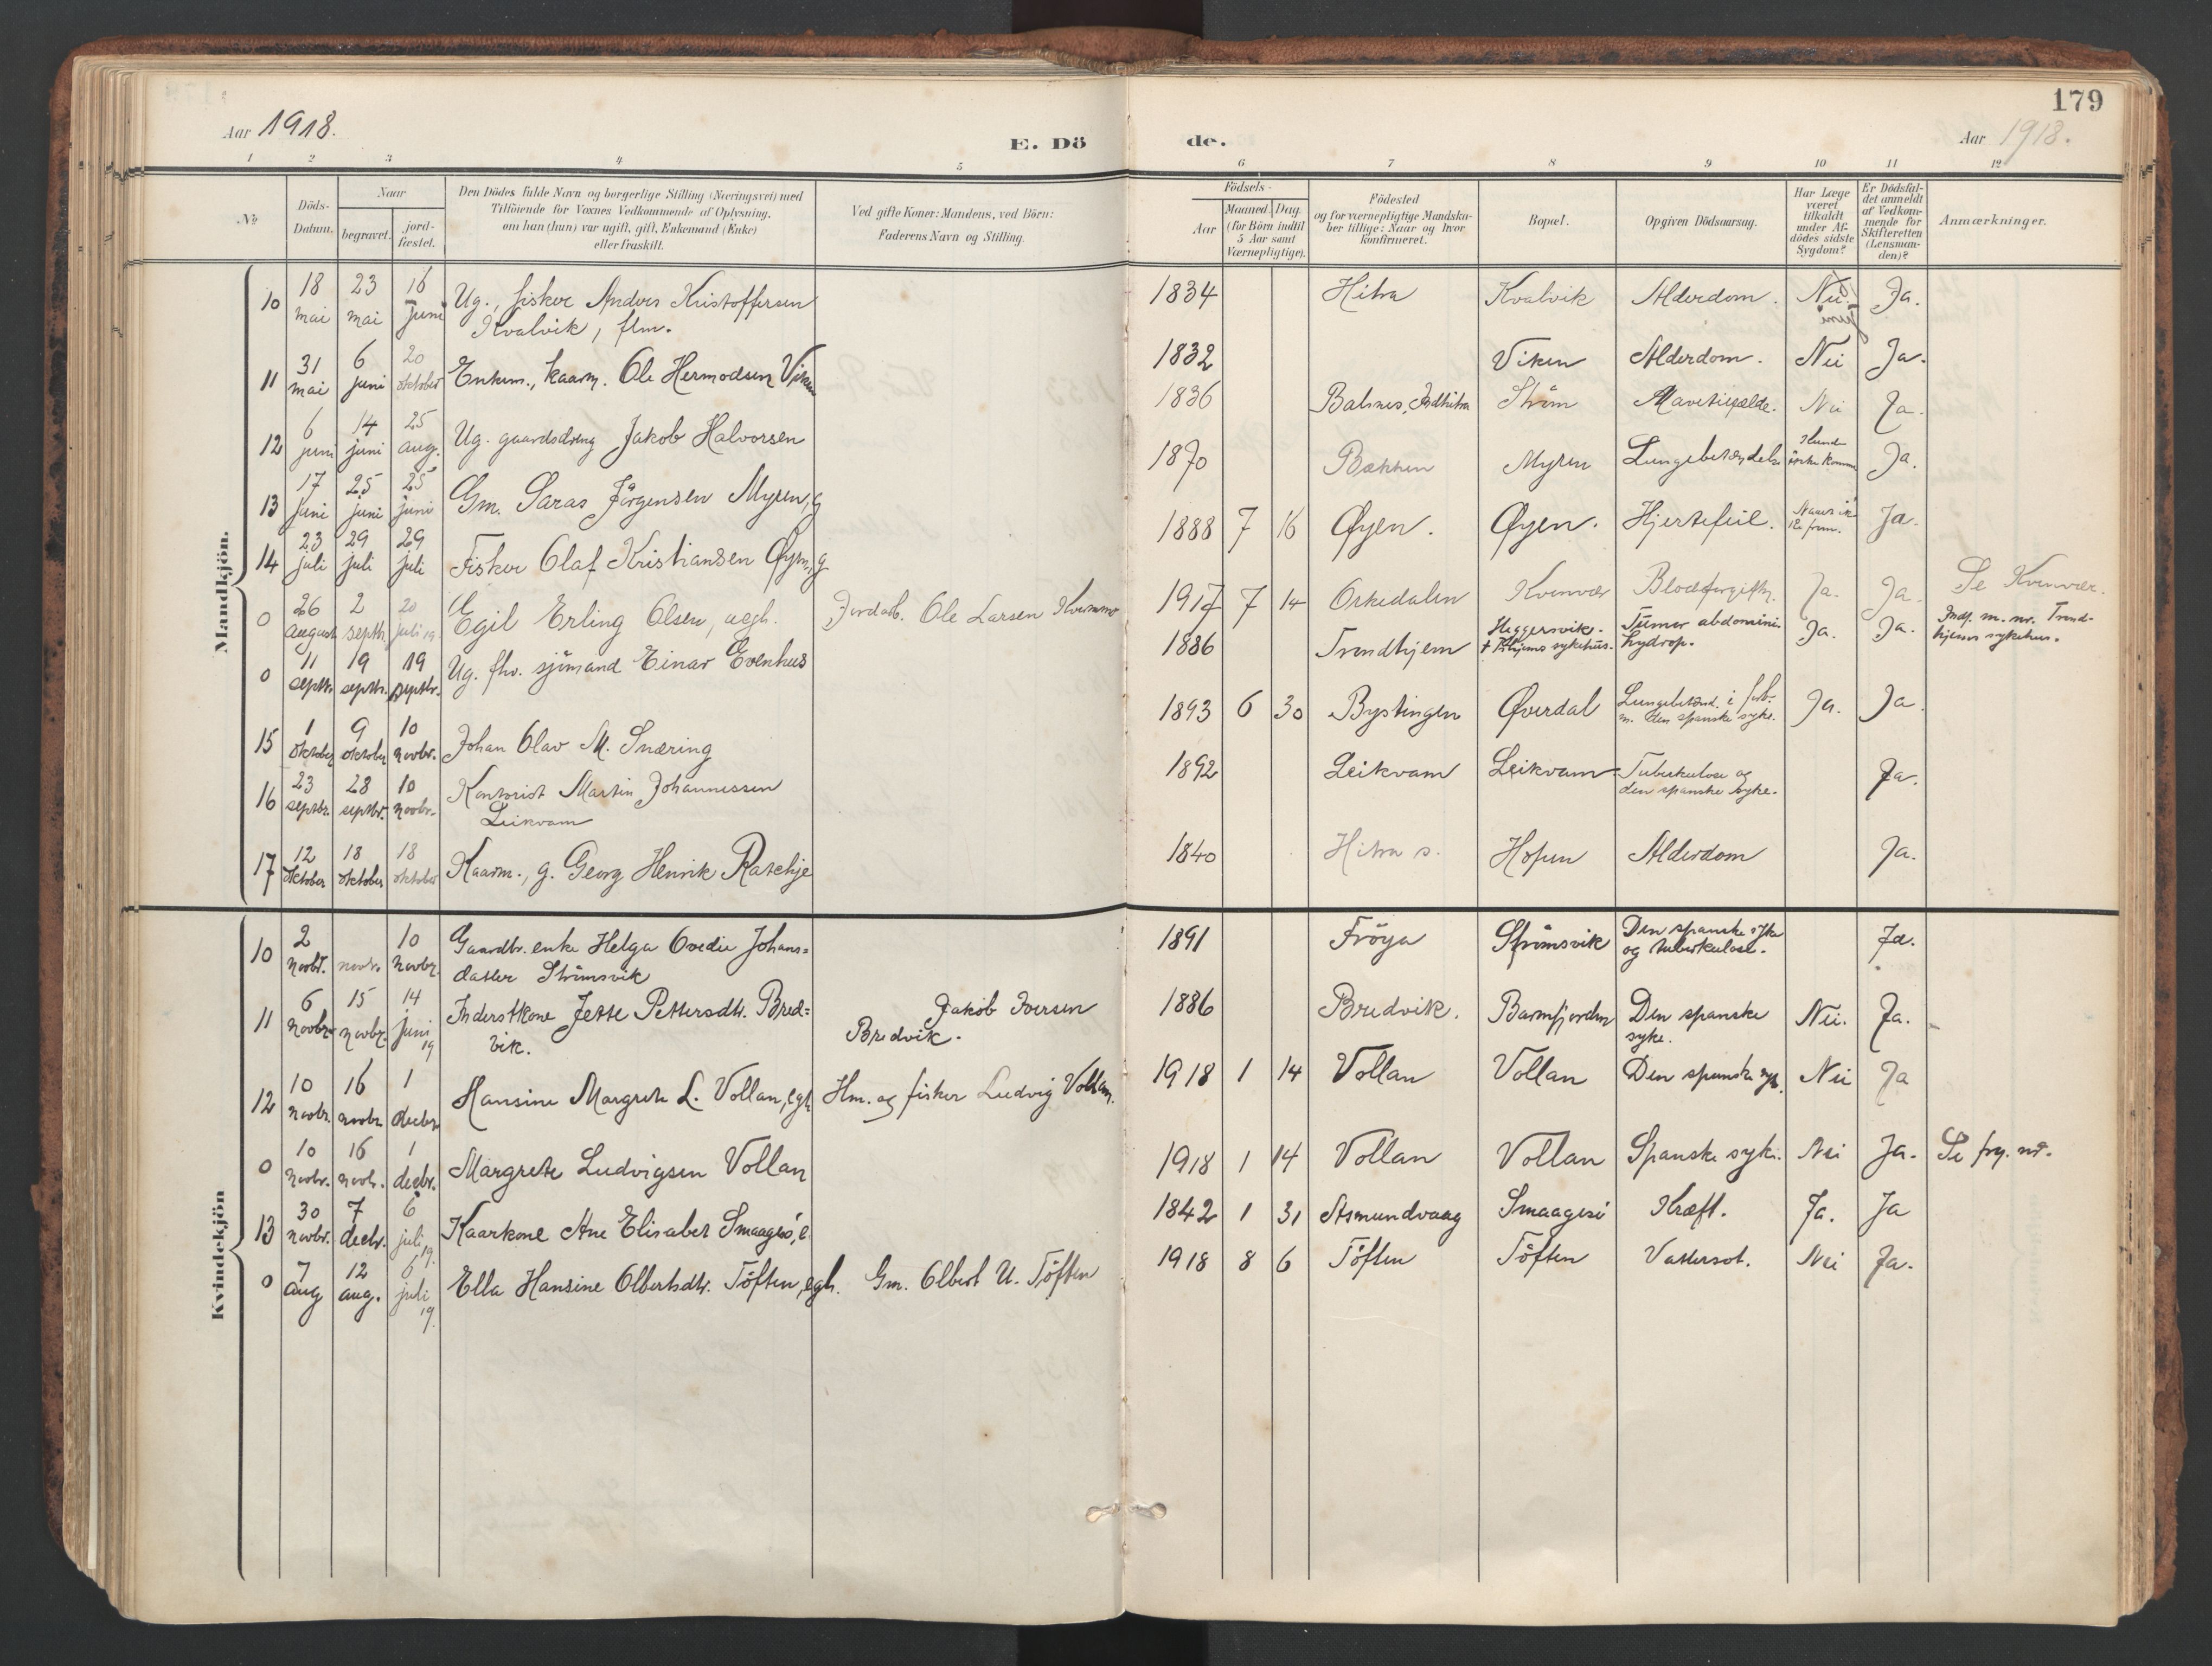 179
Aar 1918.
E. Dö
de.
Aar 1918.
1 2 3 4 5 6 7 8 9 10 11 12
No
Döds-
Datum.
Naar
begravet.
jord-
fæstet.
Den Dödes fulde Navn og borgerlige Stilling (Næringsvei) med
Tilföiende for Voxnes Vedkommende af Oplysning,
om han (hun) var ugift, gift, Enkemand (Enke)
eller fraskilt.
Ved gifte Koner: Mandens, ved Börn:
Faderens Navn og Stilling.
Födsels-
Aar
Maaned. Dag.
(for Börn indtil
5 Aar samt
Værnepligtige).
Födested
og for værnepligtige Mandska-
ber tillige: Naar og hvor
konfirmeret.
Bopæl.
Opgiven Dödsaarsag.
Har Læge
været
tilkaldt
under Af-
dödes sidste
Sygdom?
Er Dödsfal-
det anmeldt
af Vedkom-
mende for
Skifteretten
(Lensman-
den)?
Anmærkninger.
Mandkjön.
10 18 mai 23 mai 16 juni Ug., fisker Anders Kristoffersen
Kvalvik, flm. 1834 Hitra Kvalvik Alderdom. Nei. Ja.
juni
11 31 mai 6 juni 20 oktober Enkem., kaarm. Ole Hermodsen Viken 1832 Viken Alderdom. Nei Ja.
12 6 juni 14 juni 25 aug. Ug. gaardsdreng Jakob Halvorsen 1836 Balsnes, Indhitra Ström Mavetilfælde. Nei Ja.
13 17 juni 25 juni 25 juni Gm. Saras Jörgensen Myren, g 1870 Bakken Myren Lungebetændelse Kunde ikke komme Ja.
14 23 juli 29 juli 29 juli Fisker Olaf Kristiansen Øyen, g 1888 7 16 Øyen. Øyen. Hjertefeil. Naaes ik- ke frem. Ja.
0 26 august 2 septb. 20 juli 19 Egil Erling Olsen, uegh. Jordarb. Ole Larsen 1917 7 14 Orkedalen Kvenvær Blodforgiftn. Ja. Ja. Se Kvenvær.
0 11 septbr. 19 septbr. 19 septbr. Ug. fhv. sjömand Einar Evenhus 1886 Trondhjem Heggersvik.
† Trhjems sykehus. Tumor abdominis
hydrop. Ja. Ja. Indf. m. nr. Trond-
hjems sykehus.
15 1 oktober 9 oktober 10 novbr. Johan Olav M. Snæring 1893 6 30 Bystingen Øverdal Lungebetænd. i forb.
m. den spanske syke. Ja. Ja
16 23 septbr. 28 septbr. 10 novbr. Kontorist Martin Johannessen
Leikvam 1892 Leikvam Leikvam Tuberkulose og
den spanske syke. Ja.
17 12 oktober 18 oktober 18 oktober Kaarm., g. Georg Henrik Ratchje 1840 Hitra s. Hopen Alderdom Ja.
Kvindekjön
10 2 novbr. novbr. 10 novbr. Gaardbr. enke Helga Ovedie Johans=
datter Strömsvik 1891 Fröya Strömsvik Den spanske syke
og tuberkulose. Ja.
11 6 novbr. 15 novbr. 14 juni 19 Inderstkone Jette Pettersdtr. Bred=
vik. Jakob Iversen
Bredvik. 1886 Bredvik. Barmfjorden Den spanske
syke. Nei. Ja.
12 10 novbr. 16 novbr. 1 decbr. Hansine Margrete L. Vollan, egh Hm. og fisker Ludvig Vollan. 1918 1 14 Vollan Vollan Den spanske syk. Nei Ja
0 10 novbr. 16 novb. 1 decbr. Margrete Ludvigsen Vollan 1918 1 14 Vollan Vollan Spanske syke. Nei Ja. Se frg. nr.
13 30 novbr. 7 decbr. 6 juli 19 Kaarkone Ane Elisabet Smaagesö, e. 1842 1 31 Asmundvaag Smaagesö Kræft. Ja. Ja
0 7 aug 12 aug. 6 juli 19 Ella Hansine Olbertsdtr. Töften, egh. Gm. Olbert U. Töften 1918 8 6 Töften Töften Vattersot. Nei Ja.